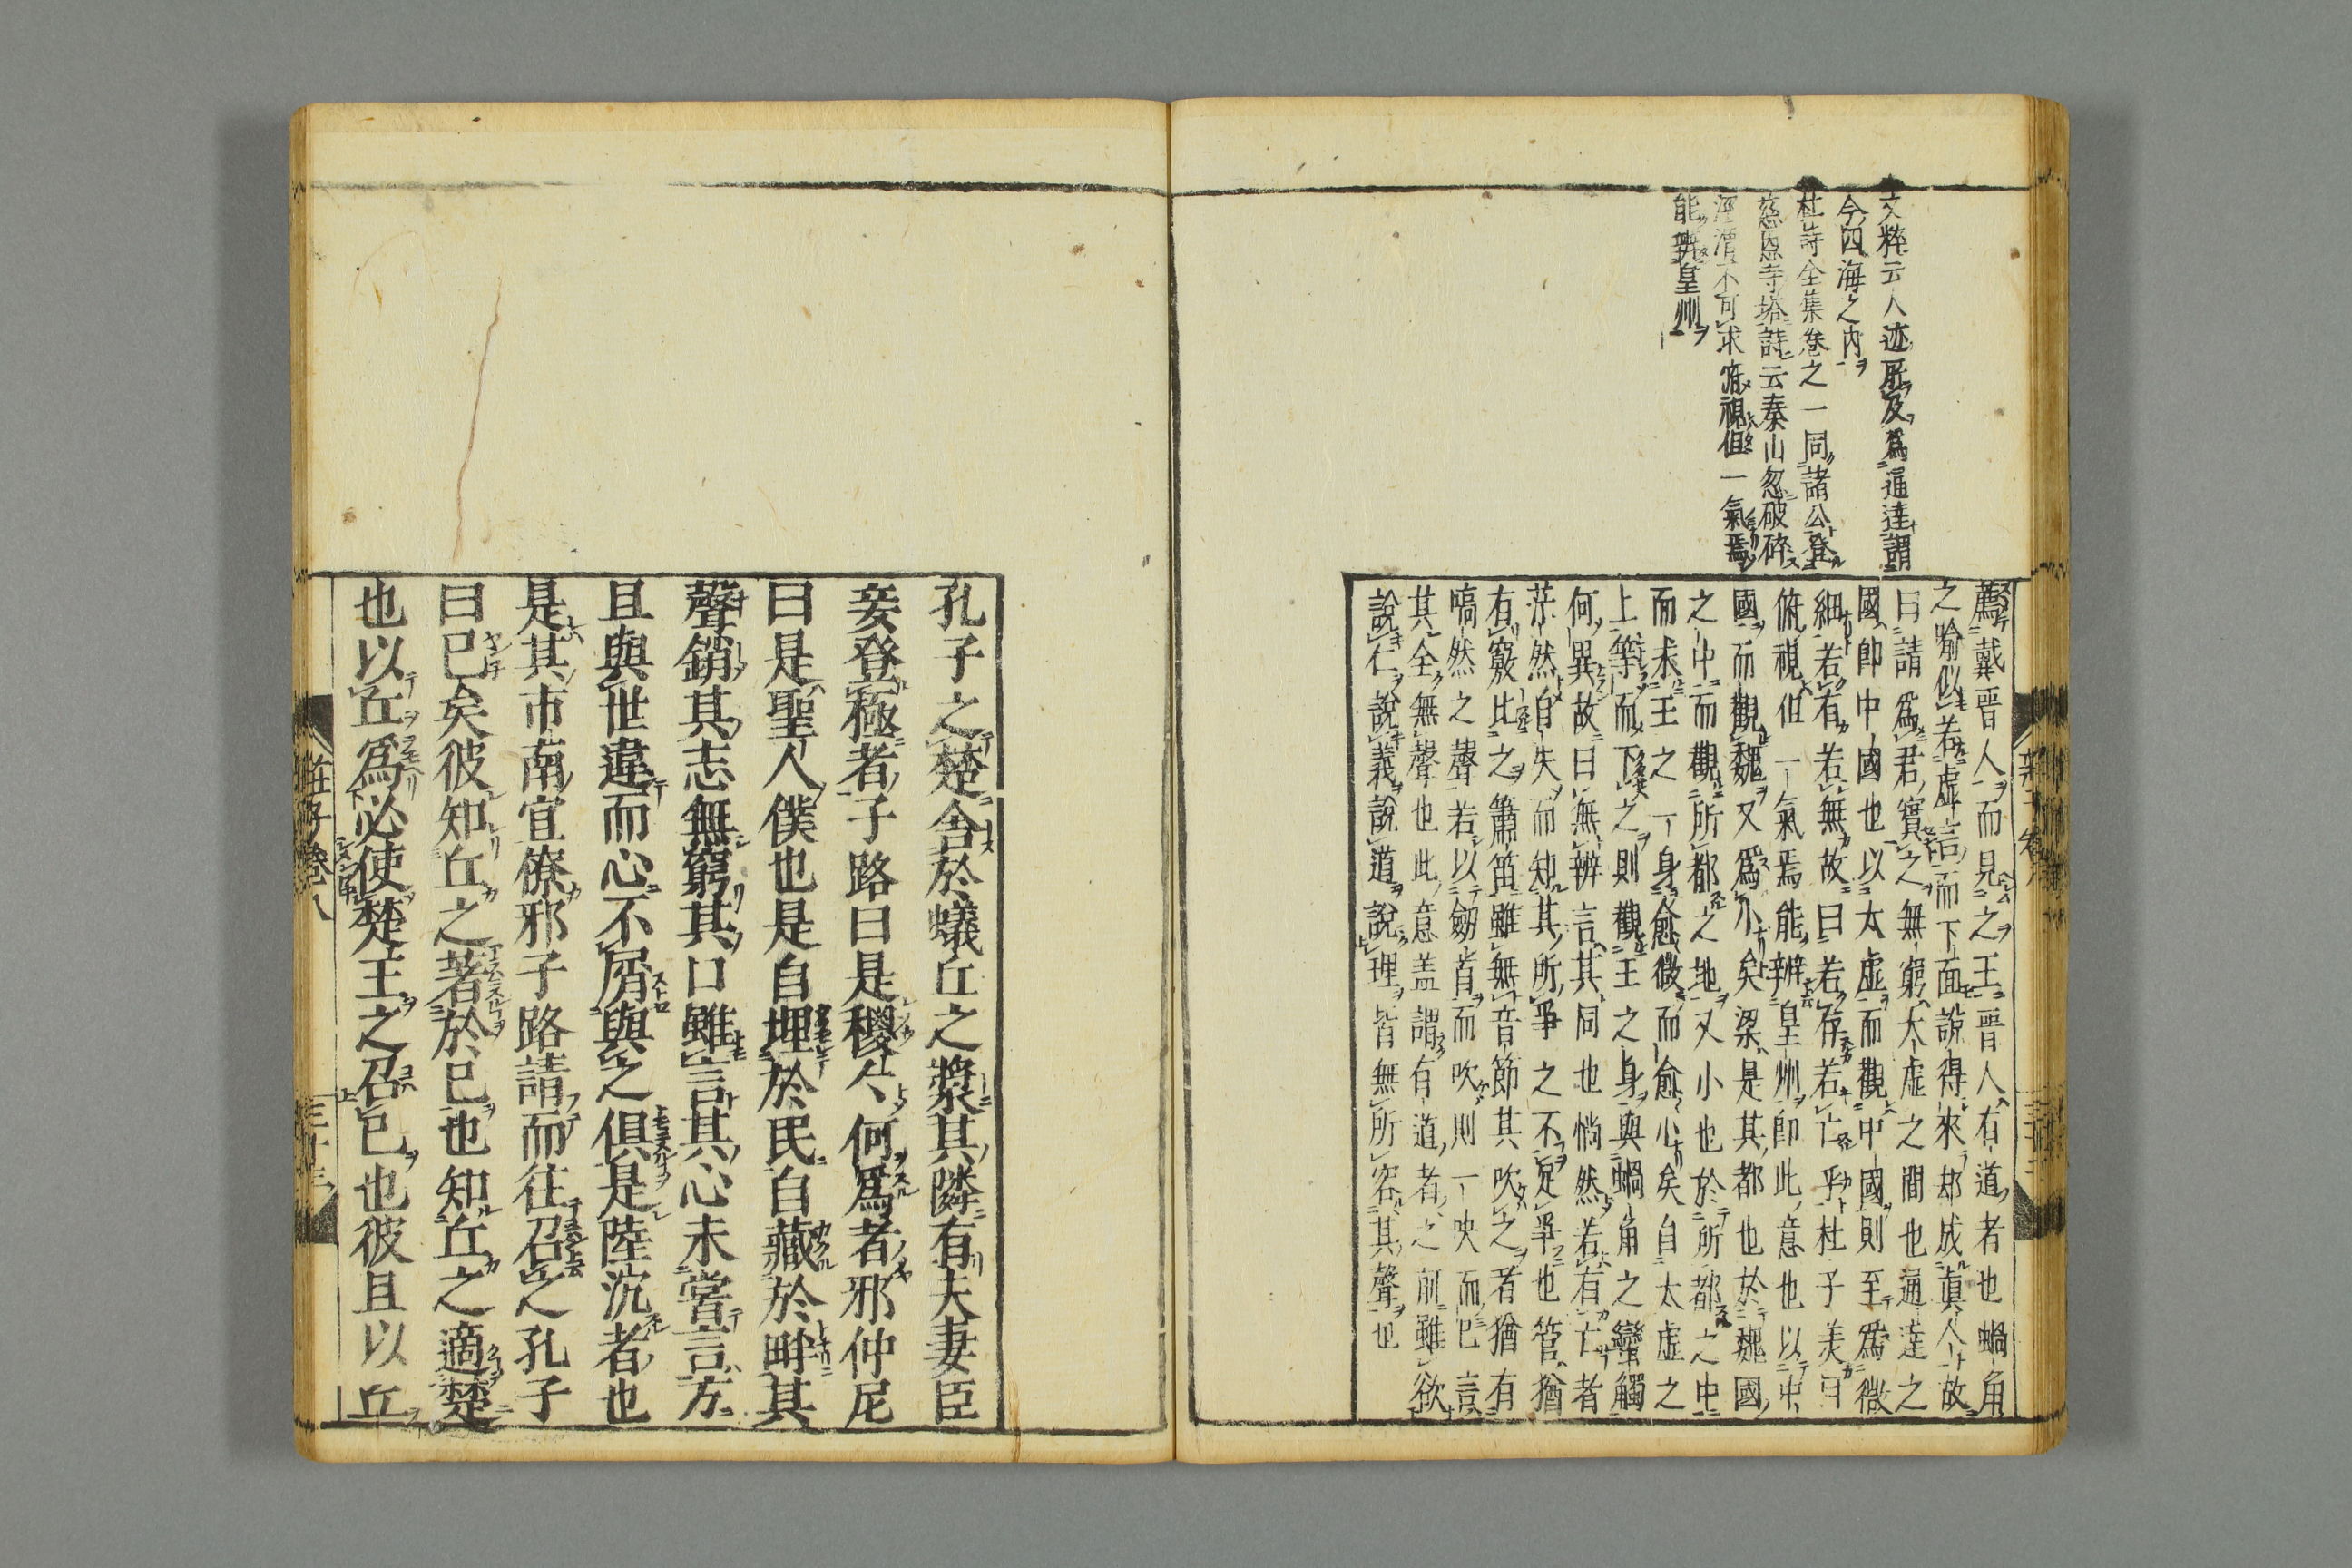 文粹云人迹所及爲通達謂
今四海之内
杜詩全集卷之一同諸公登
慈恩寺塔詩云秦山忽破碎
涇渭不可求俯視但一氣焉
能辨皇州
薦戴晋人而見之王晋人有道者也蝸角
之喻似若虚言而下面說得來却成眞人故
曰請爲君實之無窮太虚之間也通達之
國即中國也以太虚而觀中國則至爲微
細若有若無故曰若存若亡乎杜子美曰
俯視但一氣焉能辨皇州即此意也以中
國而觀魏又爲小矣梁是其都也於魏國
之中而觀所都之地又小也於所都之中
而求王之一身愈微而愈小矣自太虚之
上等而下之則觀王之身與蝸角之蠻觸
何異故曰無辨言其同也惝然若有亡者
茫然自失而知其所爭之不足爭也管猶
有竅比之簫笛雖無音節其吹之者猶有
嗃然之聲若以劒首而吹則一吷而已言
其全無聲也此意盖謂有道者之前雖欲
說仁說義說道說理皆無所容其聲也
孔子之楚舍於蟻丘之漿其隣有夫妻臣
妾登極者子路曰是稯稯何爲者邪仲尼
曰是聖人僕也是自埋於民自藏於畔其
聲銷其志無窮其口雖言其心未嘗言方
且與世違而心不屑與之俱是陸沉者也
是其市南宜僚邪子路請而往召之孔子
曰已矣彼知丘之著於已也知丘之適楚
也以丘爲必使楚王之召已也彼且以丘
莊子卷八
三十三